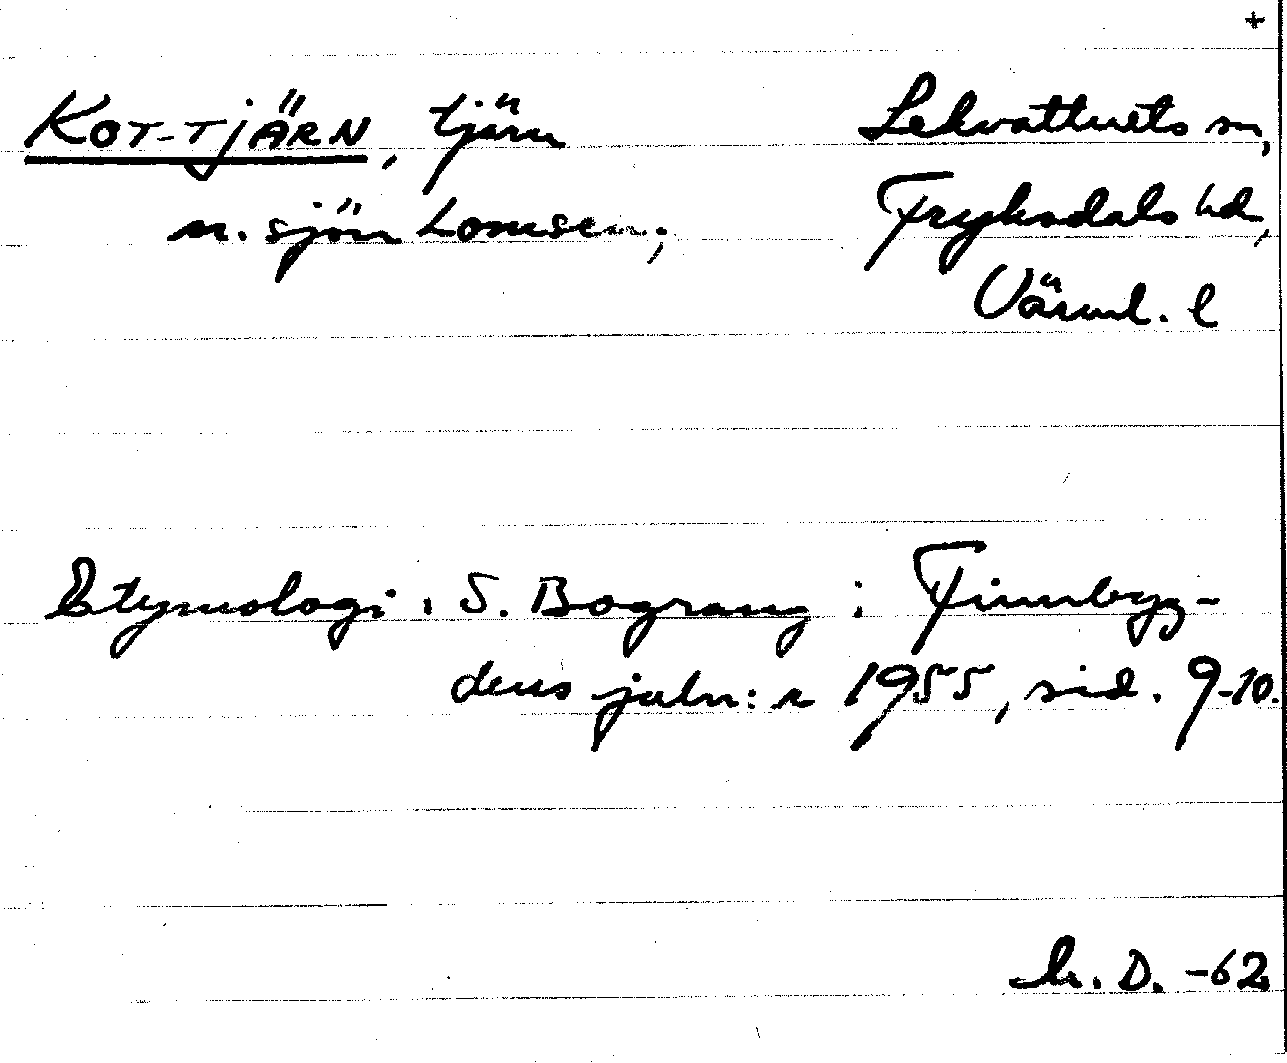 +
KOT-TJÄRN, tjärn
Lekvattnets sn,
n. sjön Lomsen;
Fryksdals hd,
Värml. l
Etymologi: S. Bograng i Finnbyg-
dens jul n:r 1955, sid. 9-10.
D. -62